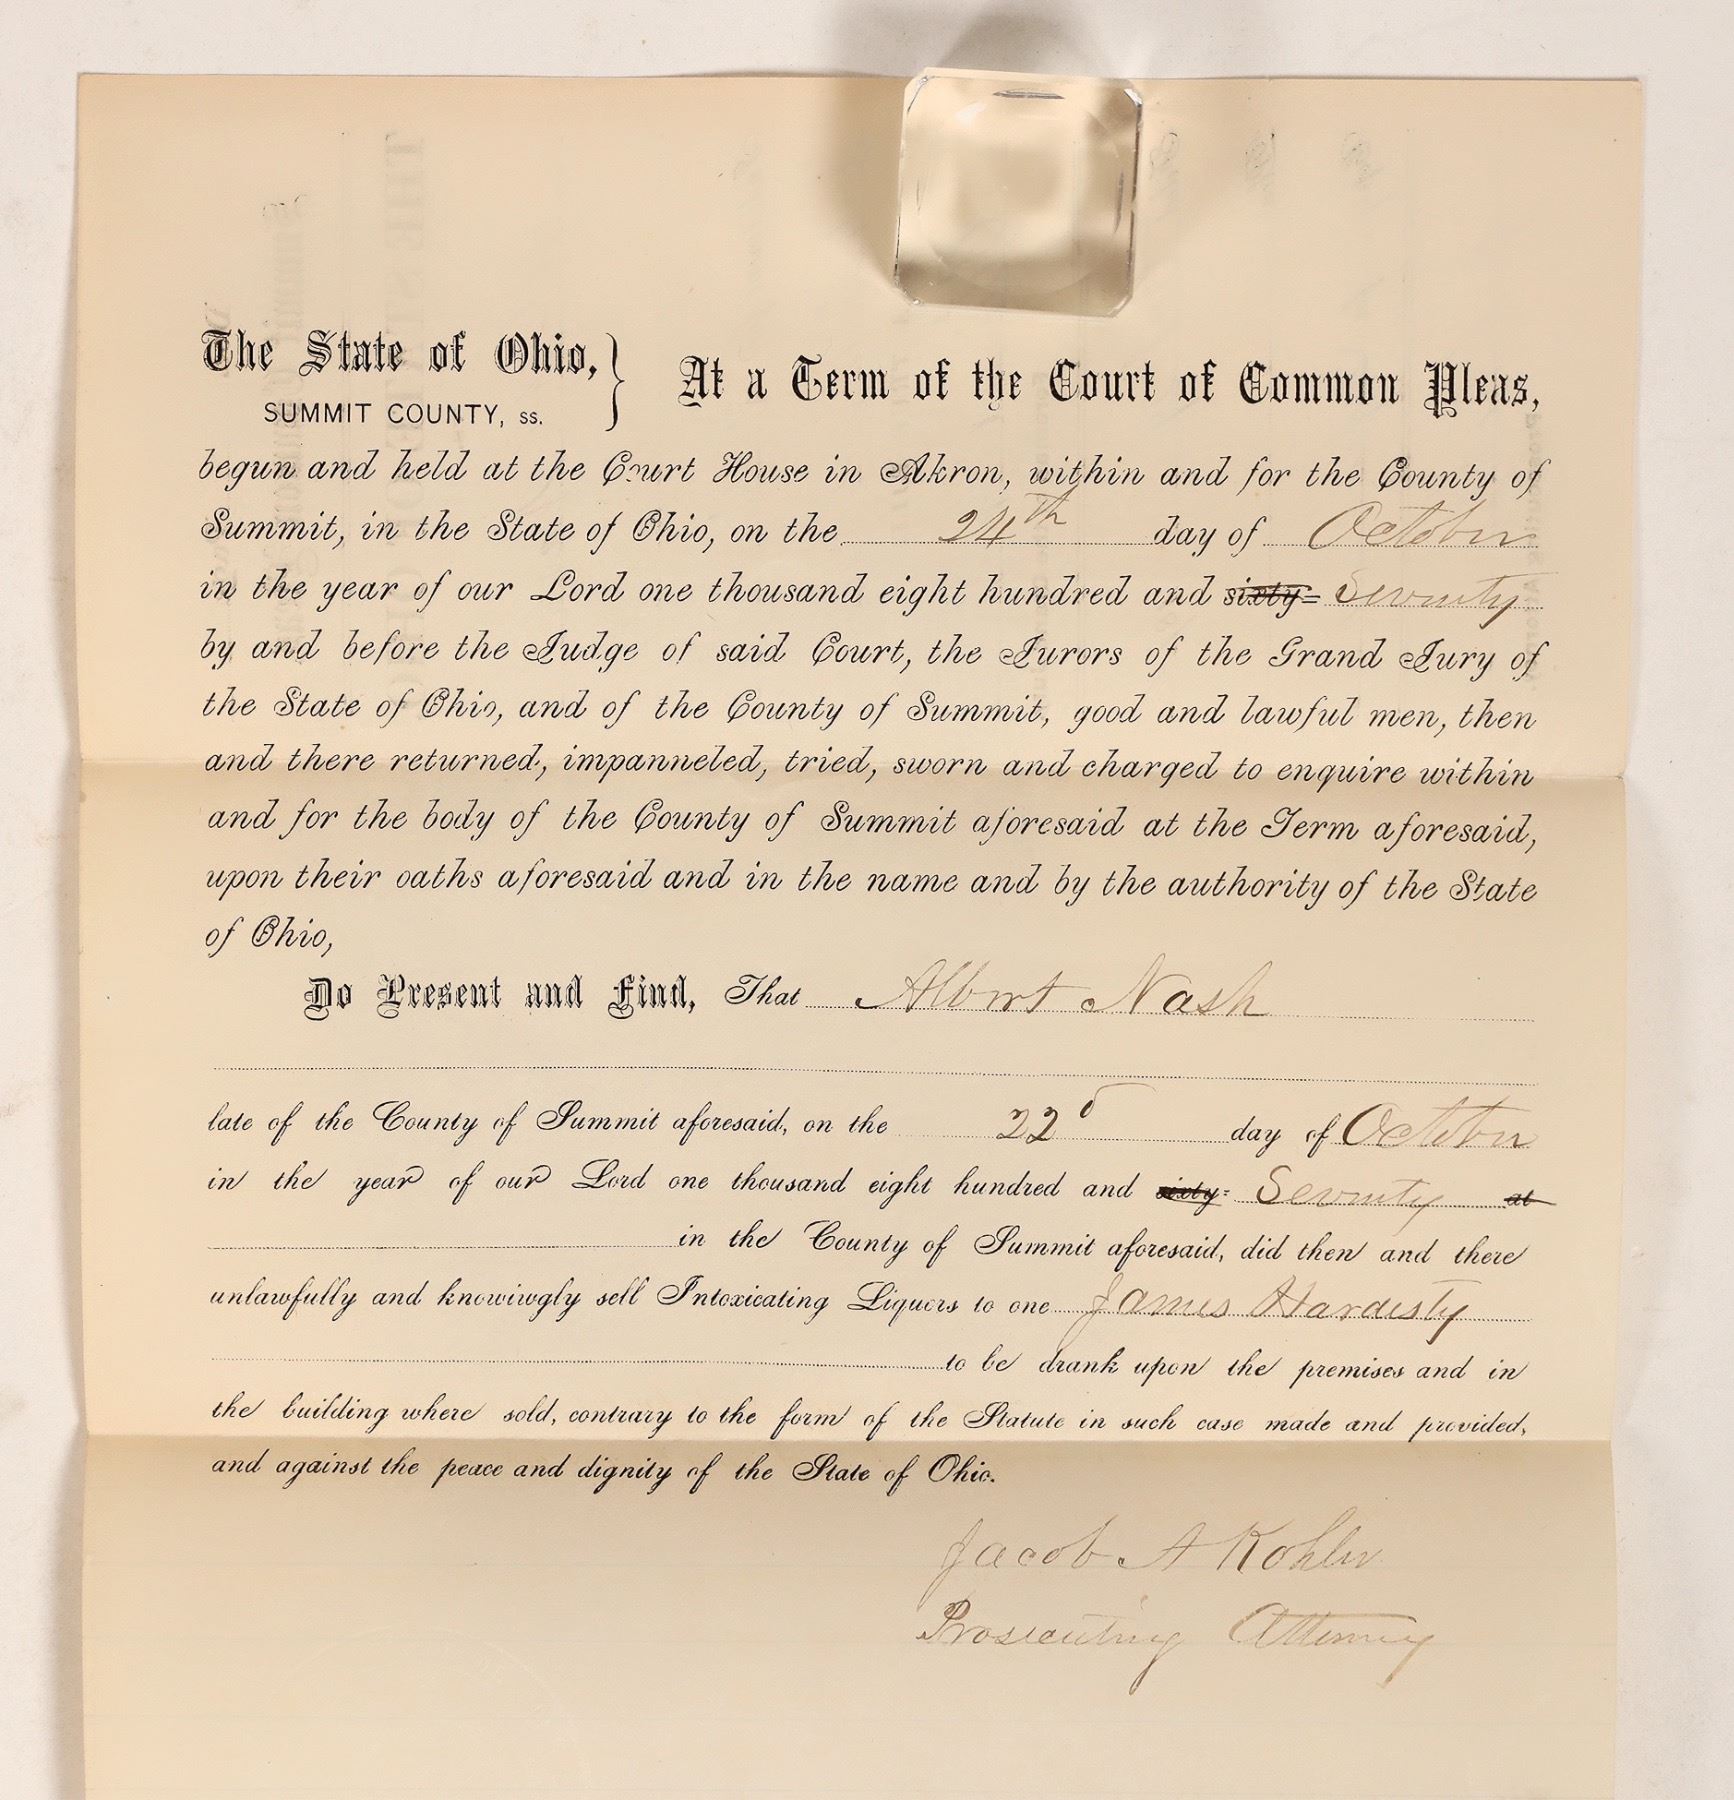 The State of Ohio,
SUMMIT COUNTY, ss.
At a Term of the Court of Common Pleas,
begun and held at the Court House in Akron, within and for the County of
Summit, in the State of Ohio, on the 24th day of October
in the year of our Lord one thousand eight hundred and sixty- Seventy
by and before the Judge of said Court, the Jurors of the Grand Jury of
the State of Ohio, and of the County of Summit, good and lawful men, then
and there returned, impanneled, tried, sworn and charged to enquire within
and for the body of the County of Summit aforesaid at the Term aforesaid,
upon their oaths aforesaid and in the name and by the authority of the State
of Ohio,
Do Present and Find, That Albert Nash
late of the County of Summit aforesaid, on the 22d day of October
in the year of our Lord one thousand eight hundred and sixty- Seventy at
in the County of Summit aforesaid, did then and there
unlawfully and knowiwgly sell Intoxicating Liquors to one James Hardesty
to be drank upon the premises and in
the building where sold, contrary to the form of the Statute in such case made and provided,
and against the peace and dignity of the State of Ohio.
Jacob A Kohler
Prosecuting Attorney